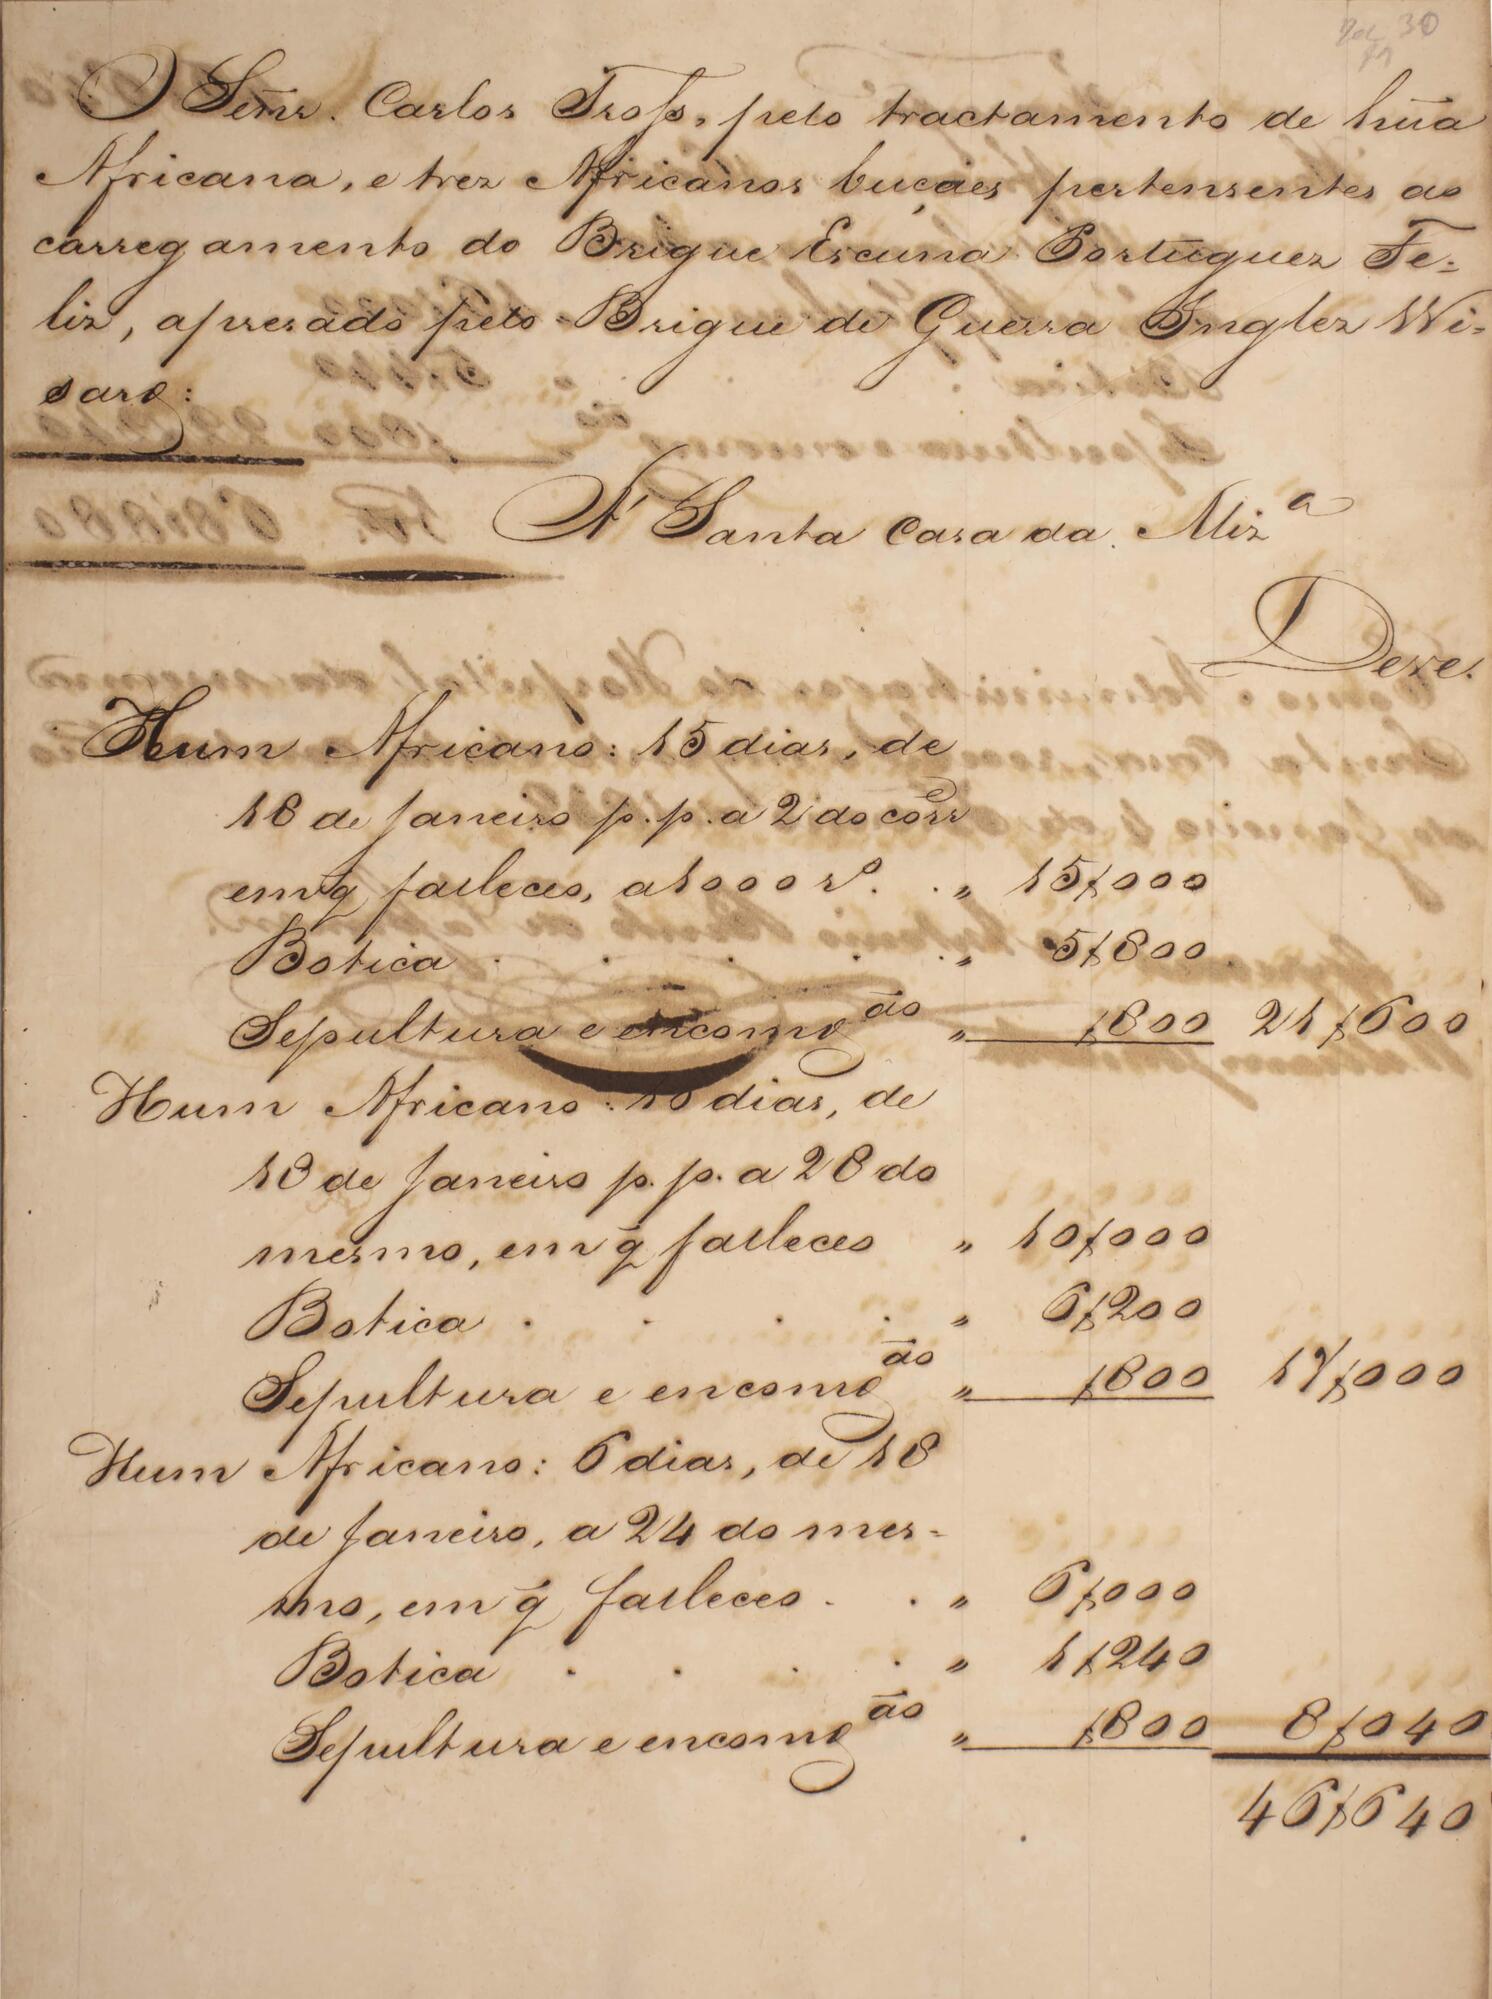 O Senr. Carlos Tross, pelo tractamento de hũa
Africana, e trez Africanos buçaes pertensentes ao
carregamento do Brigue Escuna Portuguez Fe-
liz, apresado pelo Brigue de Guerra Inglez Wi-
sard:
A' Santa Casa da Miz.a
Deve.
Hum Africano: 15 dias, de
18 de Janeiro p. p. a 2 do corre
em q̃ falleceo, a 1000 rs. . „ 15$000
Botica . . . . . „ 5$800
Sepultura e encomdão „ $800 21$600
Hum Africano: 10 dias, de
18 de Janeiro p. p. a 28 do
mesmo, em q̃ falleceo „ 10$000
Botica . . . . „ 6$200
Sepultura e encomdão „ $800 17$000
Hum Africano: 6 dias, de 18
de Janeiro, a 24 do mes-
mo, em q̃ falleceo . . „ 6$000
Botica . . . . „ 1$240
Sepultura e encomdão „ $800 8$040
46$640